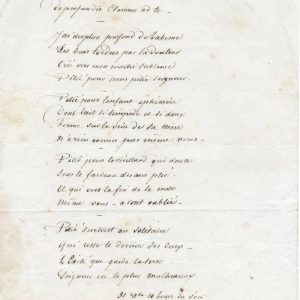 De profundis Clamavi ad te -
J'ai du plus profond de
Des bras tordus par la douleur
Crié vers mon maître sublime
Pitié pour nous pitié Seigneur.
Pitié pour l'enfant éphémère
Dont lait si limpide et si doux
Ferme sur le sein de sa mère
N'a rien connu pas même vous -
Pitié pour le vieillard qui doute
Sous le fardeau des ans plié
Et qui vers la fin de la route
Même vous - a tout oublié -
Pitié surtout au solitaire
Qui reste le dernier des deux -
que garde la terre
Seigneur est le plus malheureux
31 10 heures du soir